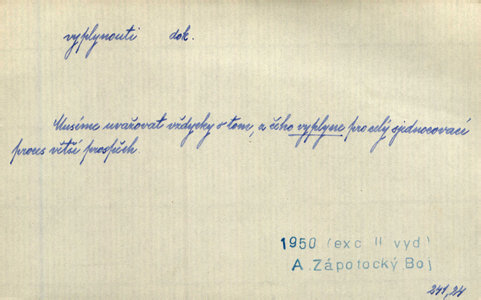 vyplynouti dok.
Musíme uvažovat vždycky o tom, z čeho vyplyne pro celý sjednocovací
proces větší prospěch.
1950 (exc II vyd)
A. Zápotocký Boj
241,24